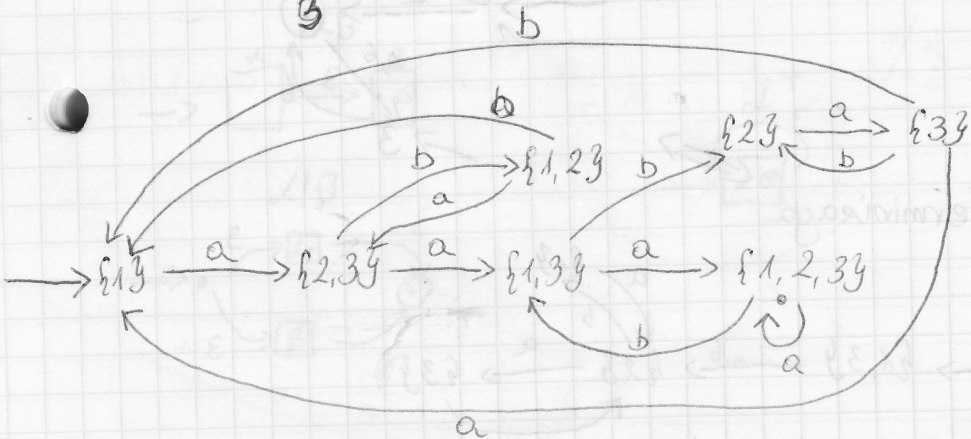 3
b
b
{2} a {3}
b {1,2} b b
a
{1} a {2,3} a {1,3} a {1,2,3}
b a
a